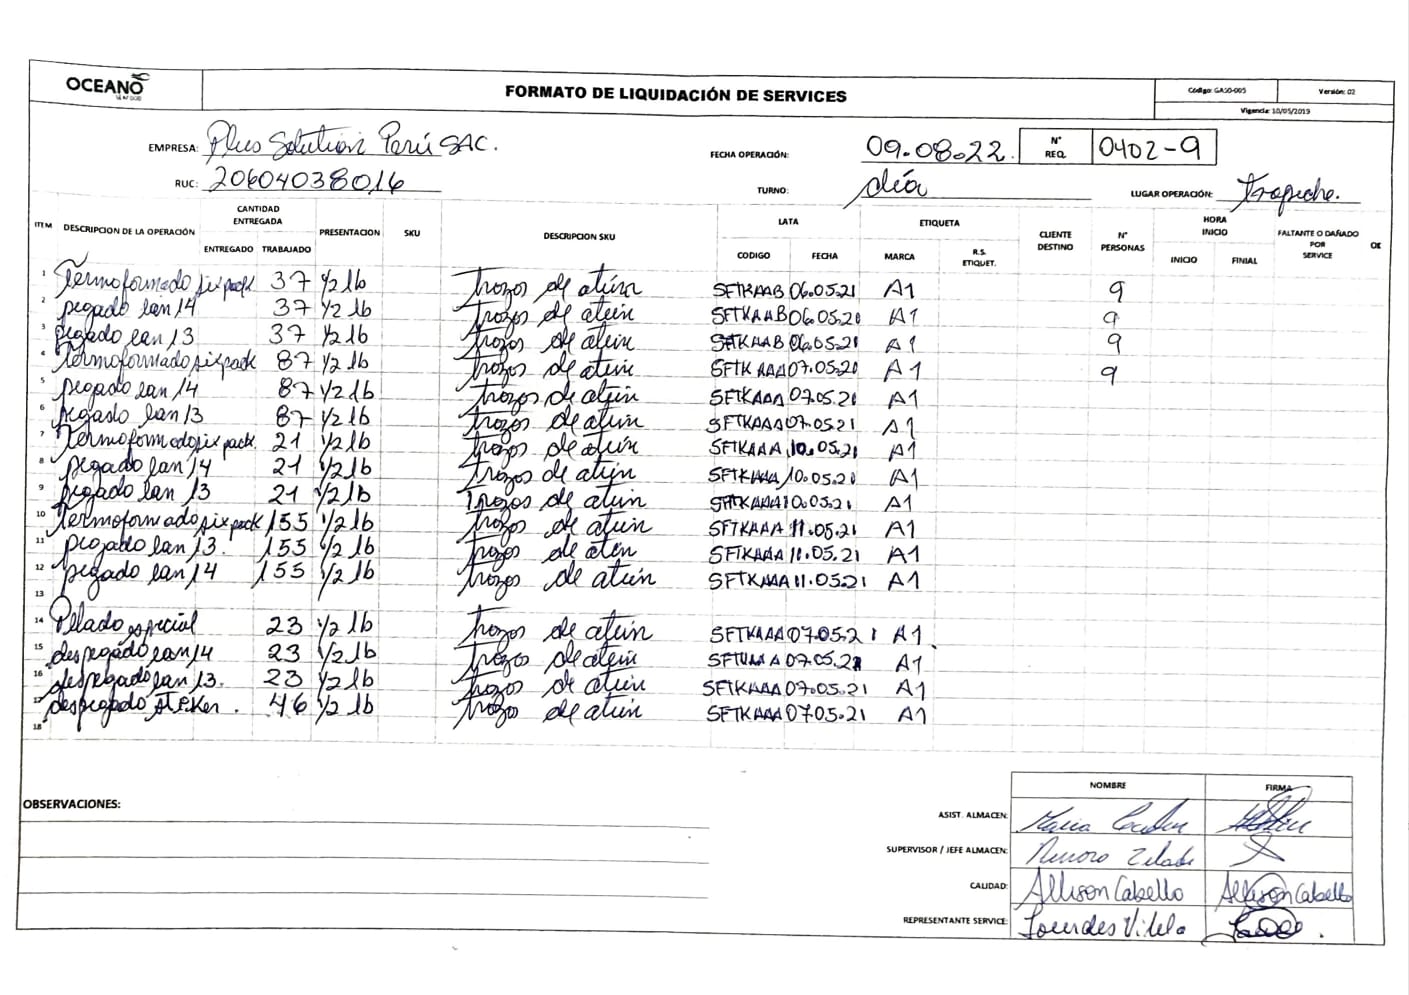 OCEANO
SEAFOOD
FORMATO DE LIQUIDACIÓN DE SERVICES
Código: GASO-005 Versión: 02
Vigencia: 10/05/2019
EMPRESA: Plus Solution Perú SAC.
FECHA OPERACIÓN: 09.08.22. N° REQ. 0402-9
RUC: 20604038016
TURNO: día
LUGAR OPERACIÓN: Trapiche.
ITEM DESCRIPCION DE LA OPERACIÓN CANTIDAD ENTREGADA PRESENTACION SKU DESCRIPCION SKU LATA ETIQUETA CLIENTE DESTINO N° PERSONAS HORA INICIO FALTANTE O DAÑADO POR SERVICE
ENTREGADO TRABAJADO CODIGO FECHA MARCA R.S. ETIQUET. INICIO FINIAL
1 Termoformado six pack 37 1/2 lb trozos de atún SFTKAAB 06.05.21 A1 9
2 pegado lan 14 37 1/2 lb trozos de atún SFTKAAB 06.05.21 A1 9
3 pegado lan 13 37 1/2 lb trozos de atún SFTKAAB 06.05.21 A1 9
4 Termoformado six pack 87 1/2 lb trozos de atún SFTKAAA 07.05.21 A1 9
5 pegado lan 14 87 1/2 lb trozos de atún SFTKAAA 07.05.21 A1
6 pegado lan 13 87 1/2 lb trozos de atún SFTKAAA 07.05.21 A1
7 Termoformado six pack. 21 1/2 lb trozos de atún SFTKAAA 10.05.21 A1
8 pegado lan 14 21 1/2 lb trozos de atún SFTKAAA 10.05.21 A1
9 pegado lan 13 21 1/2 lb trozos de atún SFTKAAA 10.05.21 A1
10 Termoformado six pack 155 1/2 lb trozos de atún SFTKAAA 11.05.21 A1
11 pegado lan 13. 155 1/2 lb trozos de atún SFTKAAA 11.05.21 A1
12 pegado lan 14 155 1/2 lb trozos de atún SFTKAAA 11.05.21 A1
13
14 Pelado especial 23 1/2 lb trozos de atún SFTKAAA 07.05.21 A1
15 despegado lan 14 23 1/2 lb trozos de atún SFTKAAA 07.05.21 A1
16 despegado lan 13. 23 1/2 lb trozos de atún SFTKAAA 07.05.21 A1
17 despegado 46 1/2 lb trozos de atún SFTKAAA 07.05.21 A1
18
NOMBRE FIRMA
OBSERVACIONES:
ASIST. ALMACEN: Maria
SUPERVISOR / JEFE ALMACEN:
CALIDAD: Allison Cabello Allison Cabello
REPRESENTANTE SERVICE: Lourdes Vilela